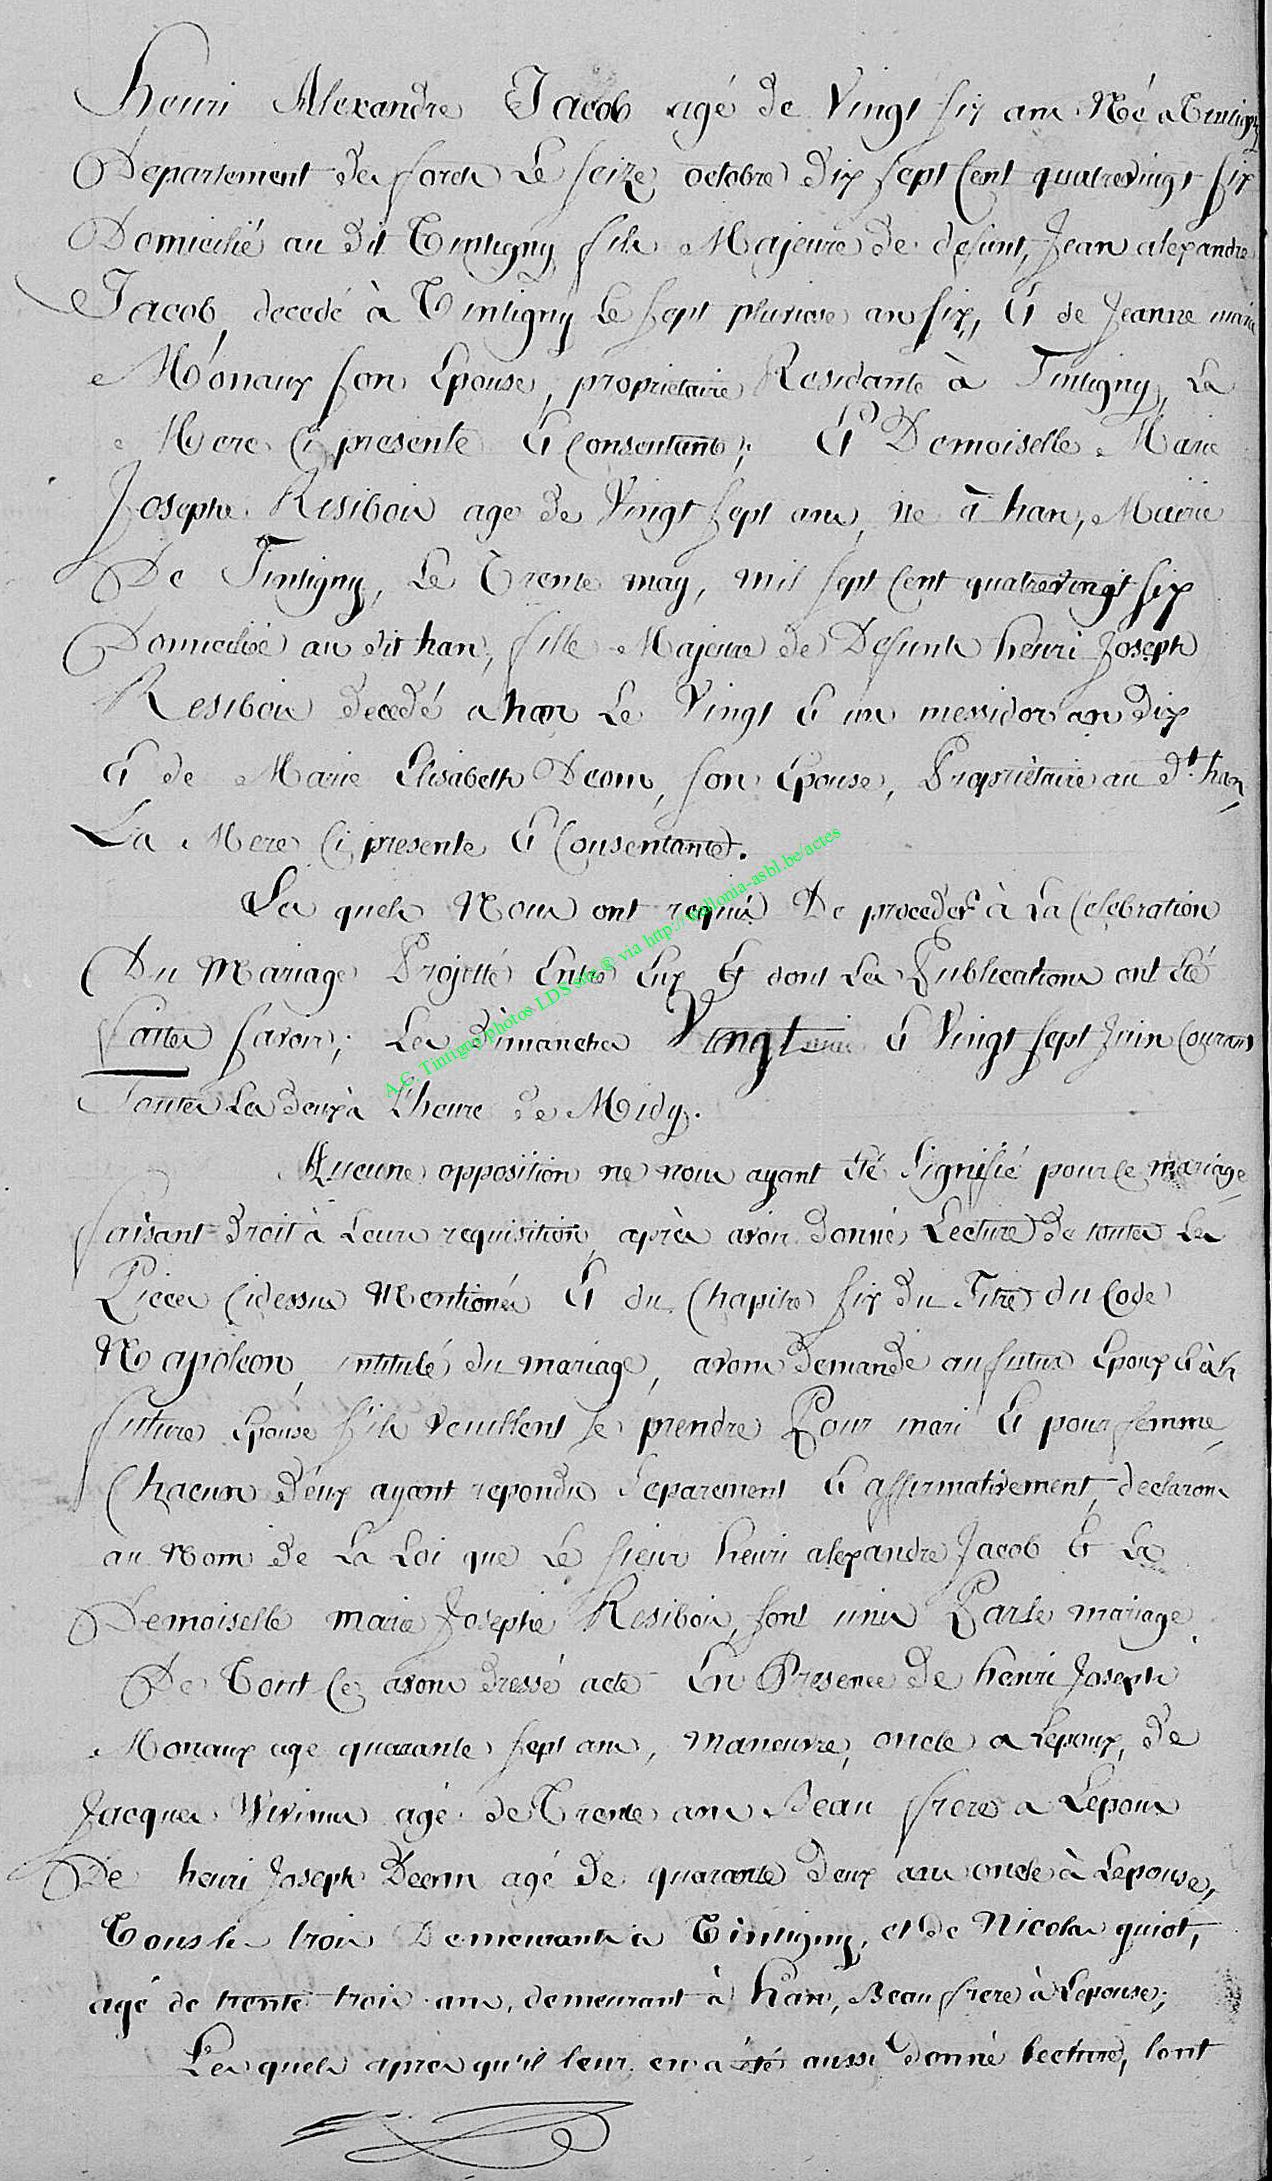 henri Alexandre Jacob agé de Vingt six ans Né a Tintigny
Departement des forets Le seize octobre dix sept Cent quatrevingt six
Domicilié au dit Tintigny fils Majeure de defunt, Jean alexandre
Jacob, decedé à Tintigny Le sept pluviose an six, Et de Jeanne marie
Monaux son Epouse, proprietaire Residante à Tintigny, La
Mere Ci presente Et Consentante; Et Demoiselle Marie
Josephe Resibois age de Vingt sept ans, né à han, Mairie
De Tintigny, Le Trente may, mil sept Cent quatrevingt six
Domiciliée au dit han, fille Majeure de Defunts henri Joseph
Resibois decedé a han Le Vingt Et un messidor an dix
Et de Marie Elisabeth Decom, son Epouse, Propriétaire au dt. han,
La Mere Ci presente Et Consentante.
Les quels Nous ont requis De proceder à La Celebration
Du Mariage Projetté Entre Eux Et dont Les Publications ont Eté
faites savoir; Les Dimanches Vingt Et Vingt sept Juin Courant
Toutes Les deux à L'heure de Midy.
Aucune opposition ne nous ayant Eté signifié pour Ce mariage
faisant droit à Leurs requisition, après avoir donné Lecture De toutes Les
Pieces Cidessus Mentionés Et du Chapitre six du Titre du Code
Napoleon, intitulé du mariage, avons Demandé au futur Epoux Et à la
future Epouse s'ils veuillent se prendre Pour mari Et pour femme,
Chacun d'eux ayant repondu separement Et affirmativement, declarons
au Nom de La Loi que Le sieur henri alexandre Jacob Et La
Demoiselle marie Josephe Resibois, sont unis Par le mariage.
De Tout Ce avons dressé acte En Presence de henri Joseph
Monaux age quarante sept ans, maneuvre, oncle a Lepoux, de
Jacques Wivinus agé de Trente ans Beau frere a Lepoux
De henri Joseph Decom agé De quarante deux ans oncle à Lepouse,
Tous les trois Demeurants à Tintigny, et de Nicolas quiot,
agé de trente trois ans, demeurant à han, Beau frere à Lepouse;
Les quels après qu'il leur en a été aussi donné lecture, l'ont
A.C. Tintigny photos LDS site ® via http://wallonia-asbl.be/actes